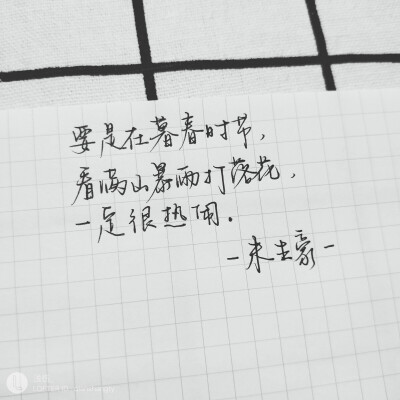 要是在暮春时节，
看满山暴雨打落花，
一定很热闹.
-朱生豪-